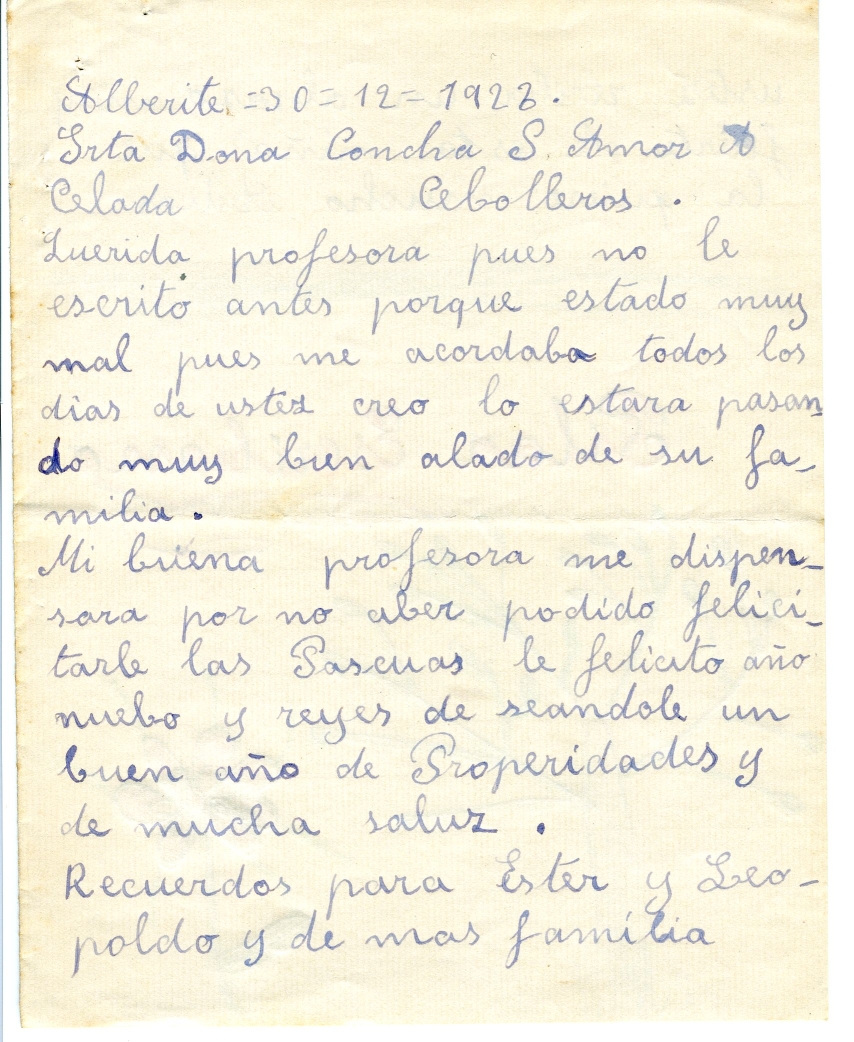 Alberite =30=12=1928.
Srta Dona Concha S. Amor A
Celada Cebolleros.
Querida profesora pues no le
escrito antes porque estado muy
mal pues me acordaba todos los
dias de ustez creo lo estara pasan
do muy bien alado de su fa-
milia.
Mi buena profesora me dispen-
sara por no aber podido felici-
tarle las Pascuas le felicito año
nuebo y reyes de seandole un
buen año de Properidades y
de mucha saluz.
Recuerdos para Ester y Leo-
poldo y de mas familia